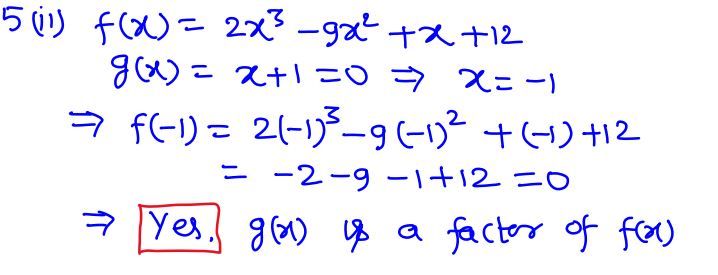 5(ii) f(x) = 2x³ - 9x² + x + 12
g(x) = x + 1 = 0 ⇒ x = -1
⇒ f(-1) = 2(-1)³ - 9(-1)² + (-1) + 12
= -2 - 9 - 1 + 12 = 0
⇒ Yes. g(x) is a factor of f(x)